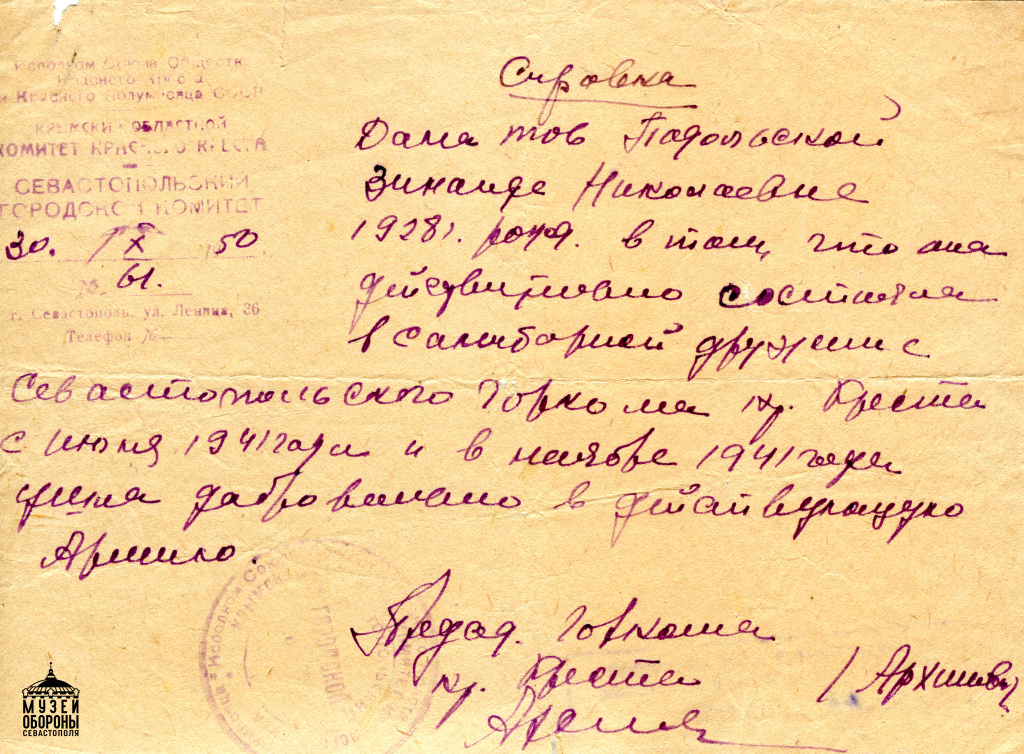 Исполком Союза Обществ
Красного Креста
и Красного Полумесяца СССР
КРЫМСКИЙ ОБЛАСТНОЙ
КОМИТЕТ КРАСНОГО КРЕСТА
СЕВАСТОПОЛЬСКИЙ
ГОРОДСКОЙ КОМИТЕТ
30. X 1950
№ 61.
г. Севастополь, ул. Ленина, 26
Телефон №
Справка
Дана тов Подольской
Зинаиде Николаевне
1928 г. рожд. в том, что она
действительно состояла
в санитарной дружине
Севастопольского Горкома кр. Креста
с июня 1941 года и в ноябре 1941 года
ушла добровольно в действующую
Армию.
Председ. Горкома
кр. Креста
МУЗЕЙ
ОБОРОНЫ
СЕВАСТОПОЛЯ